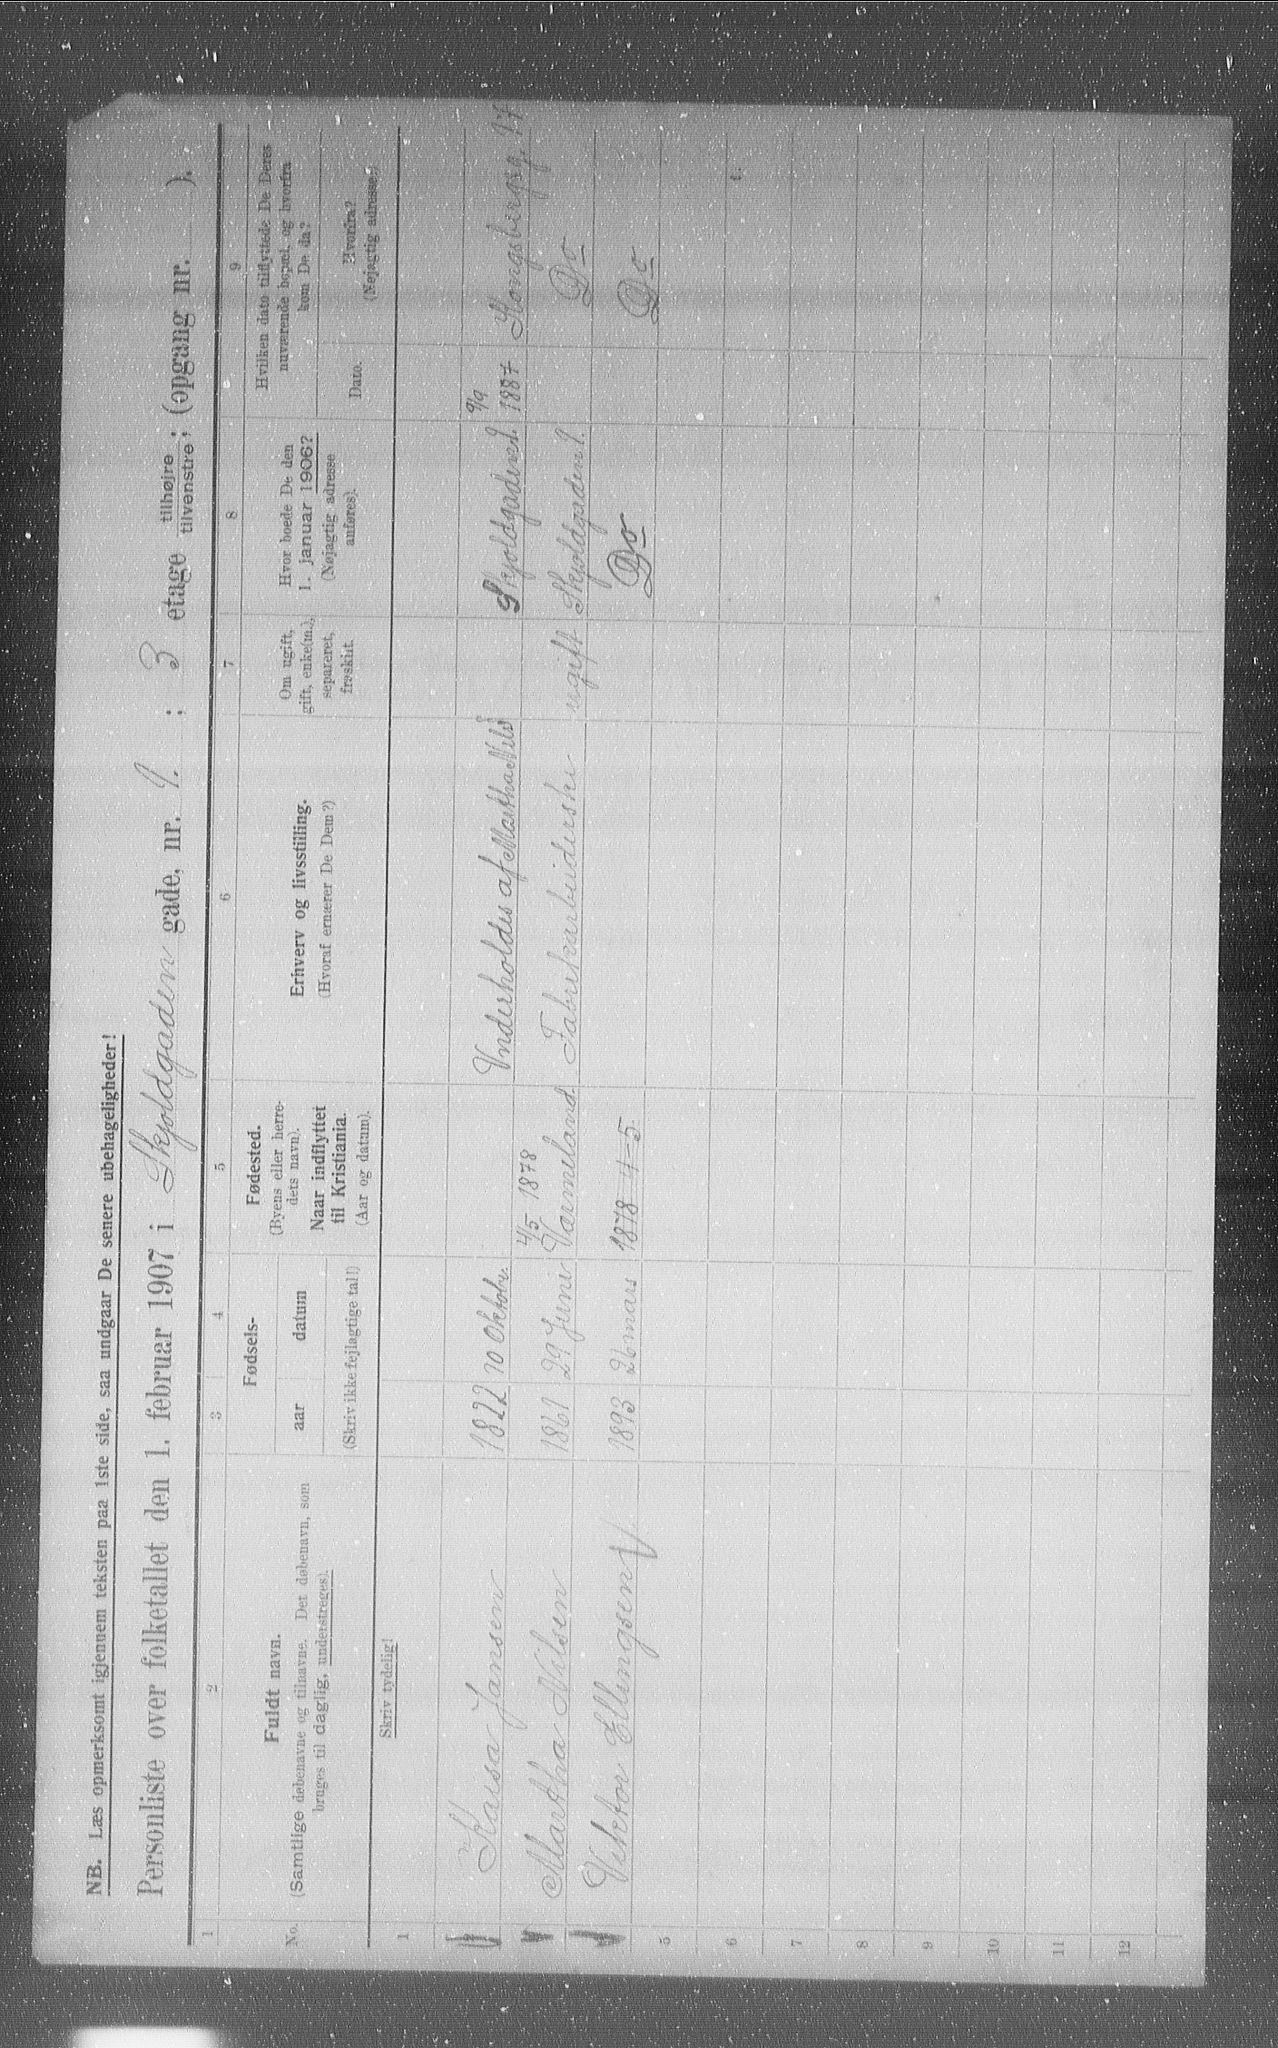 NB. Læs opmerksomt igjennem teksten paa 1ste side, saa undgaar De senere ubehageligheder!
Personliste over folketallet den 1. februar 1907 i Skjoldgaden gade, nr. 1. ; 3 etage tilhøjre / tilvenstre; (opgang nr. ).
1 2 3 4 5 6 7 8 9
No.
Fuldt navn.
(Samtlige døbenavne og tilnavne. Det døbenavn, som
bruges til daglig, understreges).
Fødsels-
aar datum
(Skriv ikke fejlagtige tal!)
Fødested.
(Byens eller herre-
dets navn).
Naar indflyttet
til Kristiania.
(Aar og datum).
Erhverv og livsstilling.
(Hvoraf ernærer De Dem?)
Om ugift,
gift, enke(m.),
separeret,
fraskilt.
Hvor boede De den
1. januar 1906?
(Nøjagtig adresse
anføres).
Hvilken dato tilflyttede De Deres
nuværende bopæl, og hvorfra
kom De da?
Dato.
Hvorfra?
(Nøjagtig adresse.)
Skriv tydelig!
1
Kaisa Jansen 1822 10 Oktobr. Underholdes af Martha Nils Skjoldgaden 1. 9/9 1887 Kongsbergg. 17
4/5 1878
Martha Nilsen 1861 29 Juni Varmeland Fabrikarbeiderske ugift Skjoldgaden 1. Do
Viktor Ellingsen 1893 26 mars 1878 4-5 Do Do
5
6 t.
7
8
9
10
11
12